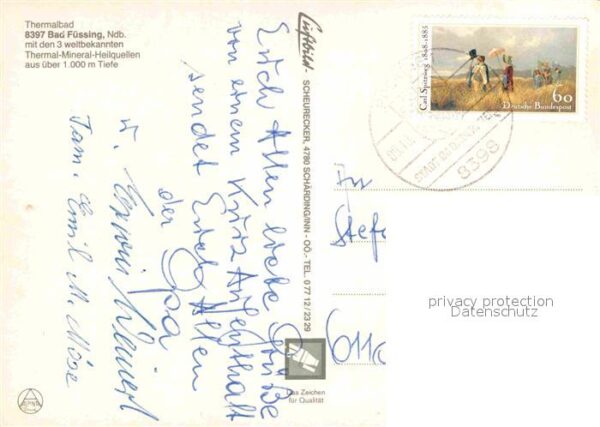 Thermalbad
8397 Bad Füssing, Ndb.
mit den 3 weltbekannten
Thermal-Mineral-Heilquellen
aus über 1.000 m Tiefe
Euch Allen liebe Grüße
von einem Kurz Aufenthalt
sendet Euch Allen
der Opa
Fam. Emil M.
Luftbild - SCHEURECKER, 4780 SCHÄRDING/INN - OÖ.- TEL. 0 77 12 / 23 29
Das Zeichen
für Qualität
Carl Spitzweg 1808-1885
60
Deutsche Bundespost
8398
Stefa
privacy protection
Datenschutz